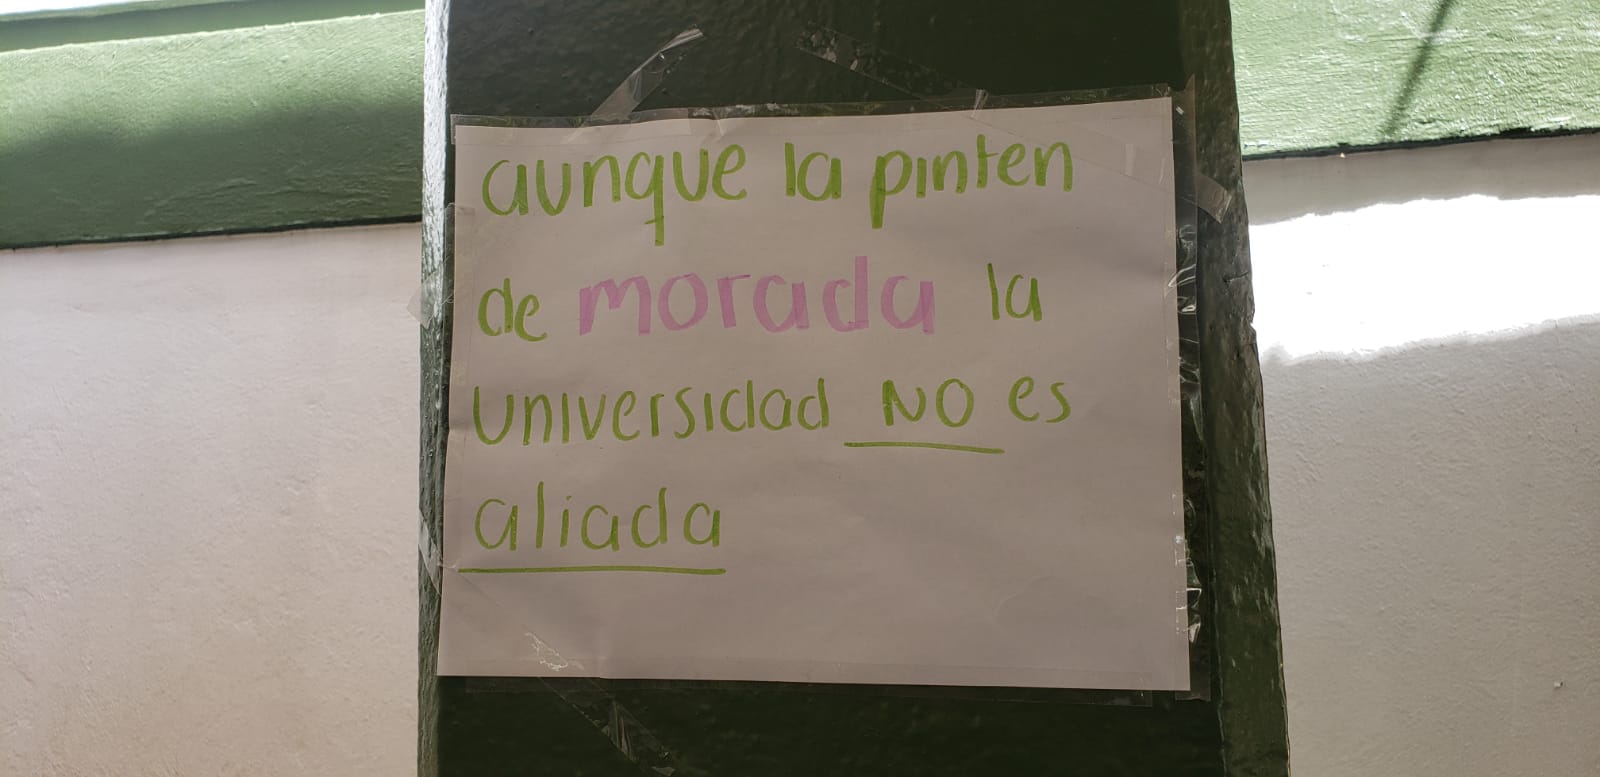 aunque la pinten
de morada la
universidad NO es
aliada